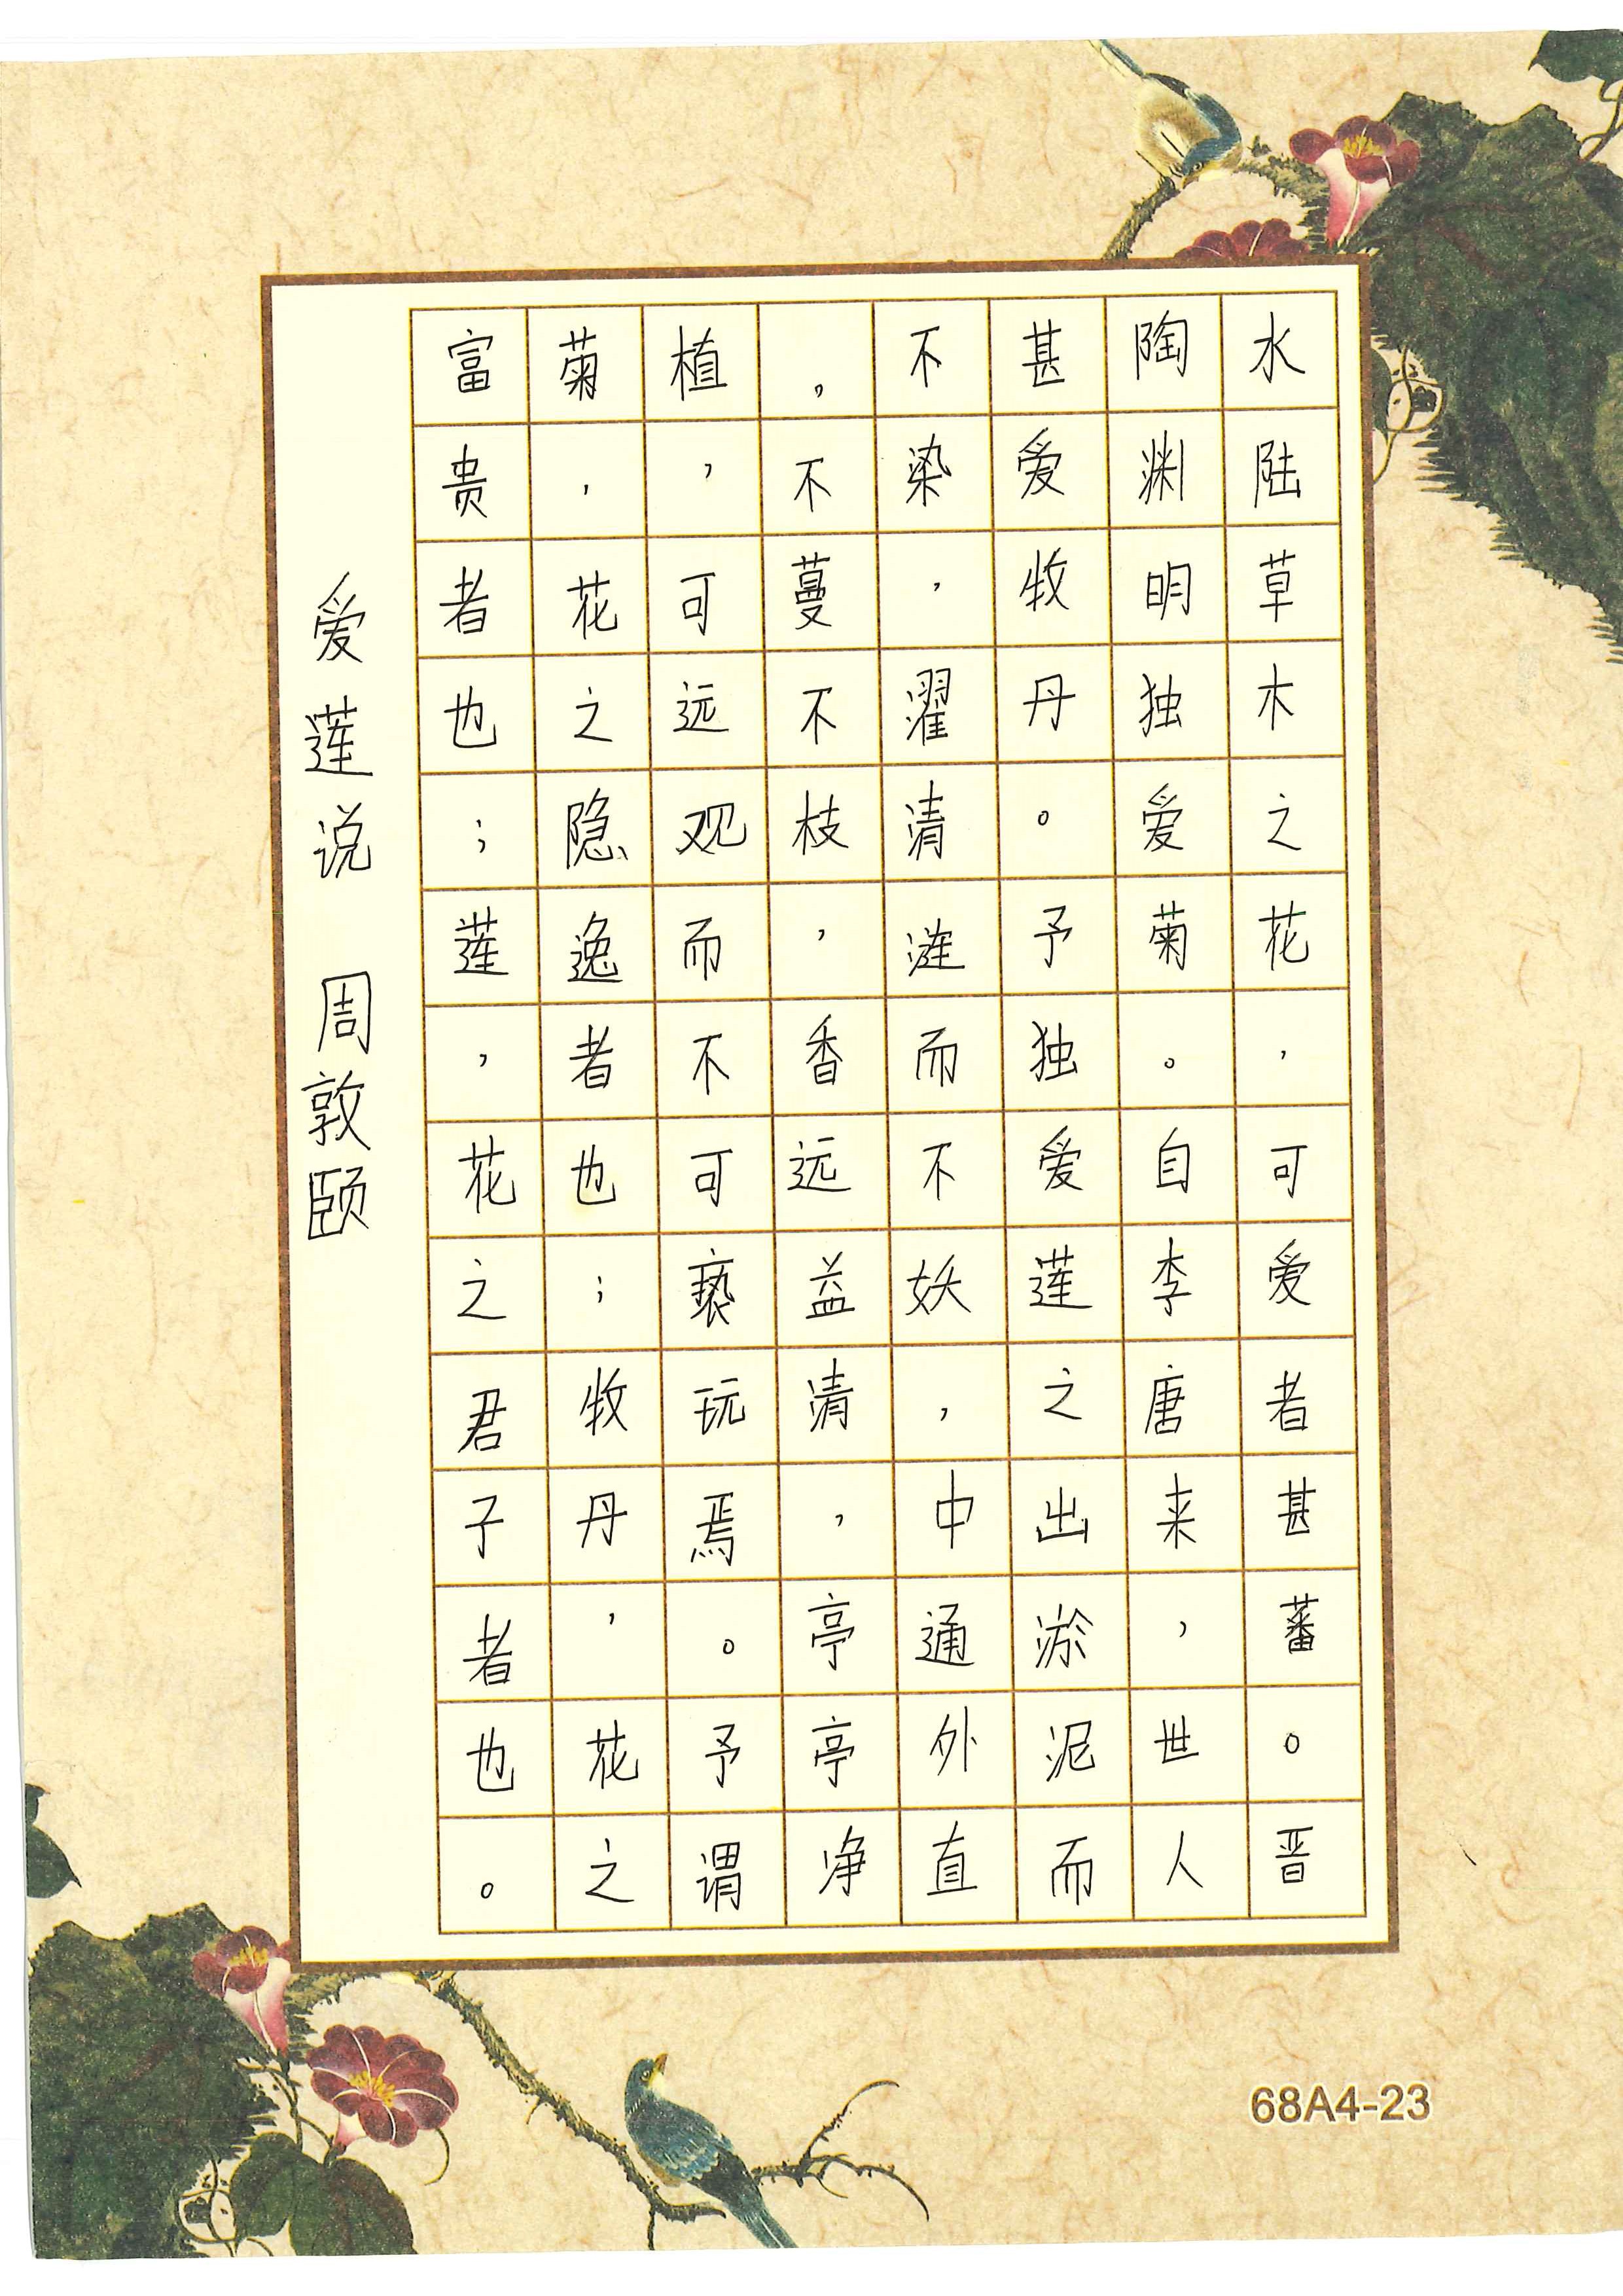 水陆草木之花，可爱者甚蕃。晋
陶渊明独爱菊。自李唐来，世人
甚爱牧丹。予独爱莲之出淤泥而
不染，濯清涟而不妖，中通外直
，不蔓不枝，香远益清，亭亭净
植，可远观而不可亵玩焉。予谓
菊，花之隐逸者也；牧丹，花之
富贵者也；莲，花之君子者也。
爱莲说 周敦颐
68A4-23